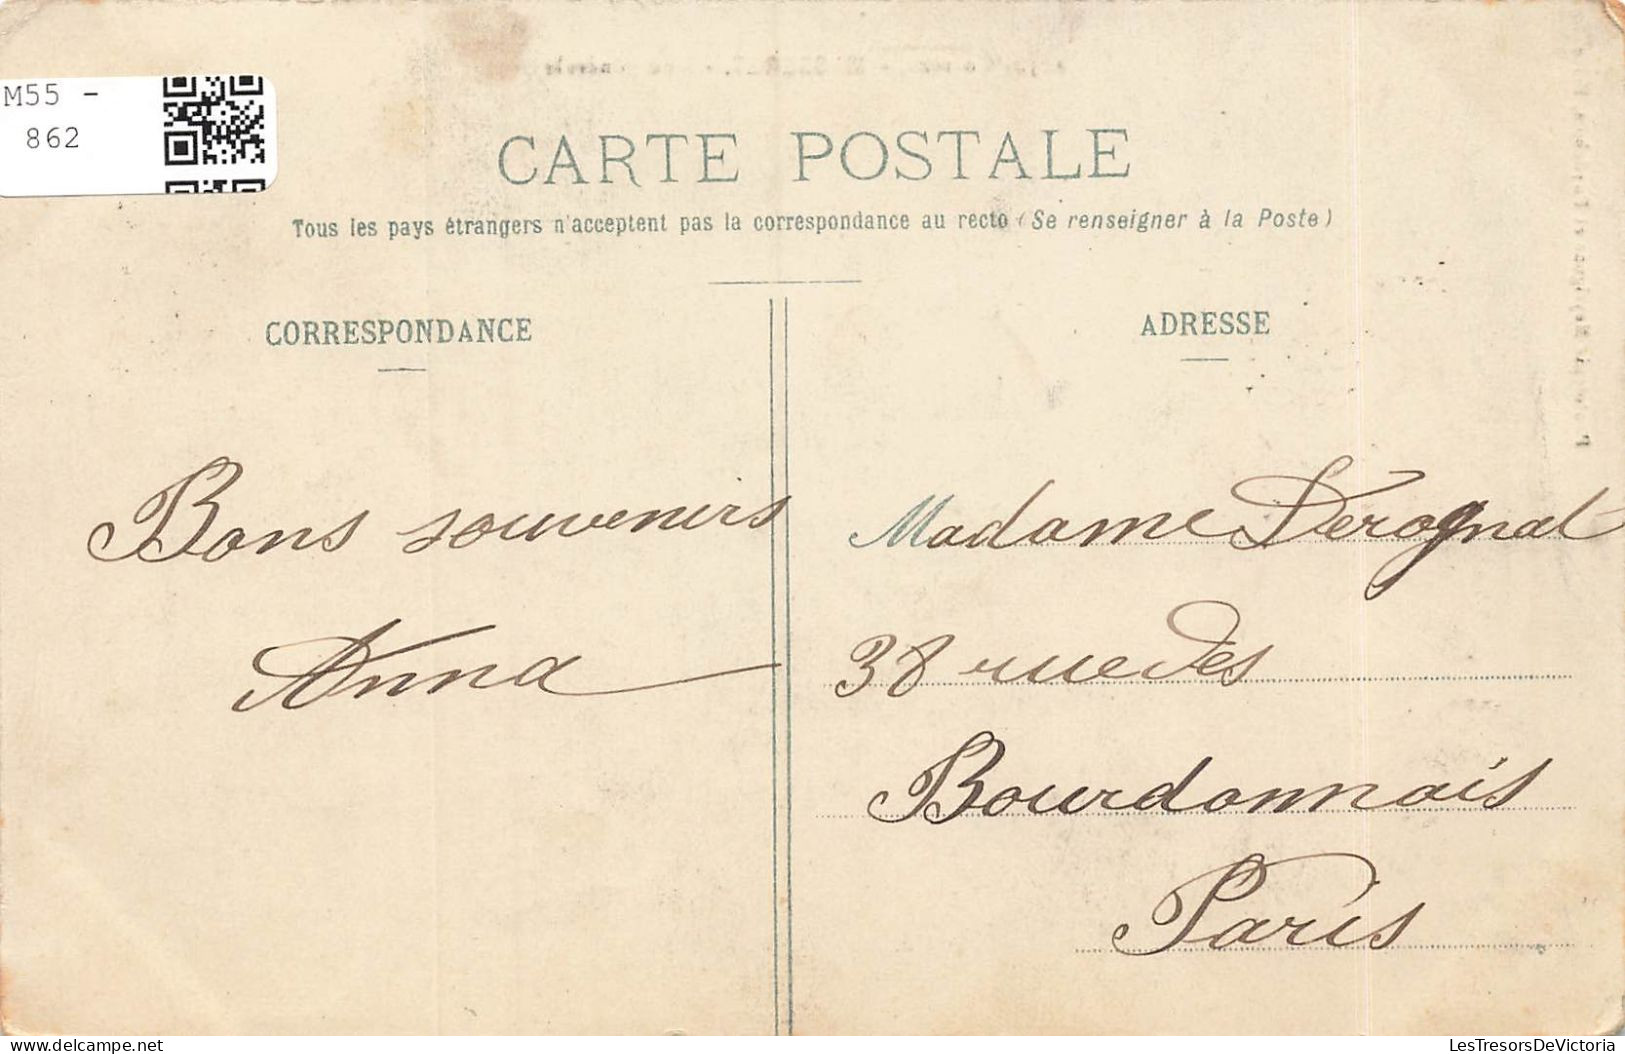 M55 -
862
CARTE POSTALE
Tous les pays étrangers n'acceptent pas la correspondance au recto (Se renseigner à la Poste)
CORRESPONDANCE
Bons souvenirs
Anna
ADRESSE
Madame Derognat
38 rue des
Bourdonnais
Paris
delcampe.net
LesTresorsDeVictoria